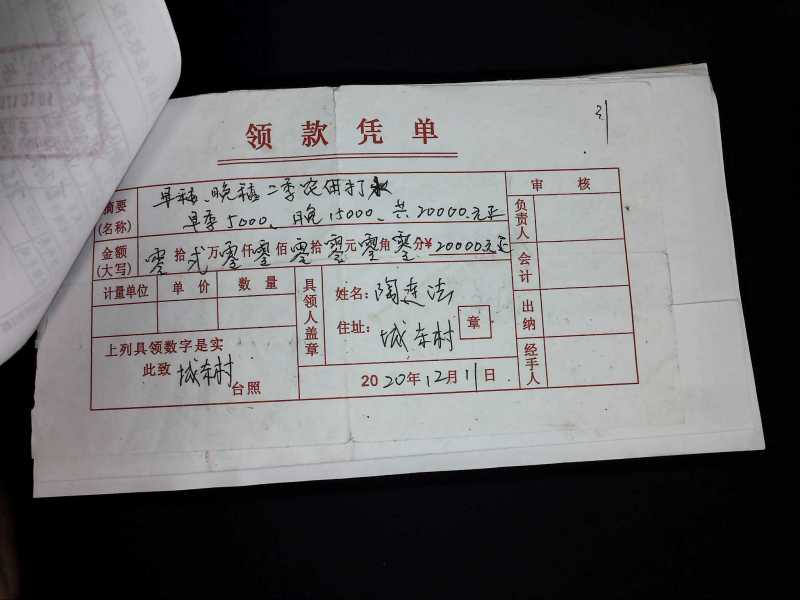 领款凭单
31
摘要(名称) 早稻、晚稻二季农用打水
早季5000、晚15000、共20000.元正
金额(大写) 零拾贰万零仟零佰零拾零元零角零分¥20000元正
计量单位 单价 数量
具领人盖章
姓名:陶连法
住址:城东村
章
上列具领数字是实
此致 城东村 台照
2020年12月11日
审核
负责人
会计
出纳
经手人